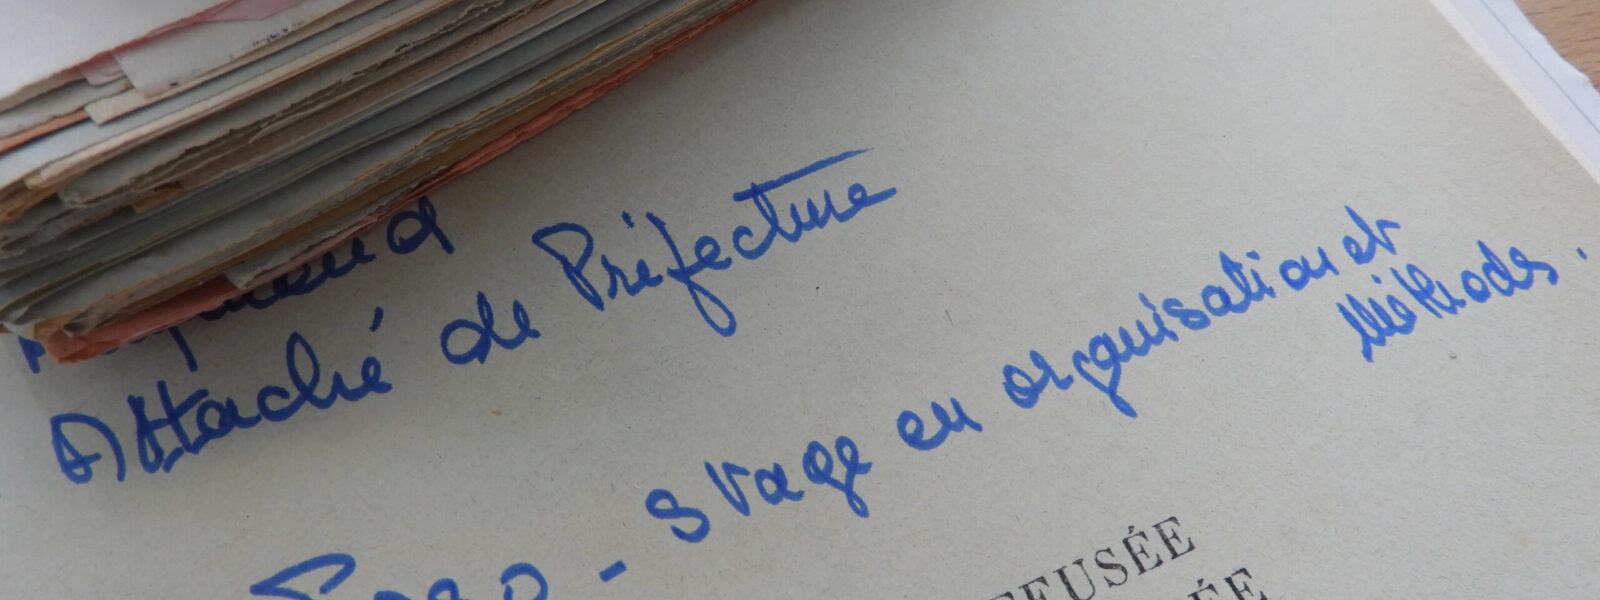 Attaché de Préfecture
Togo - Stage en organisation et
Méthodes.